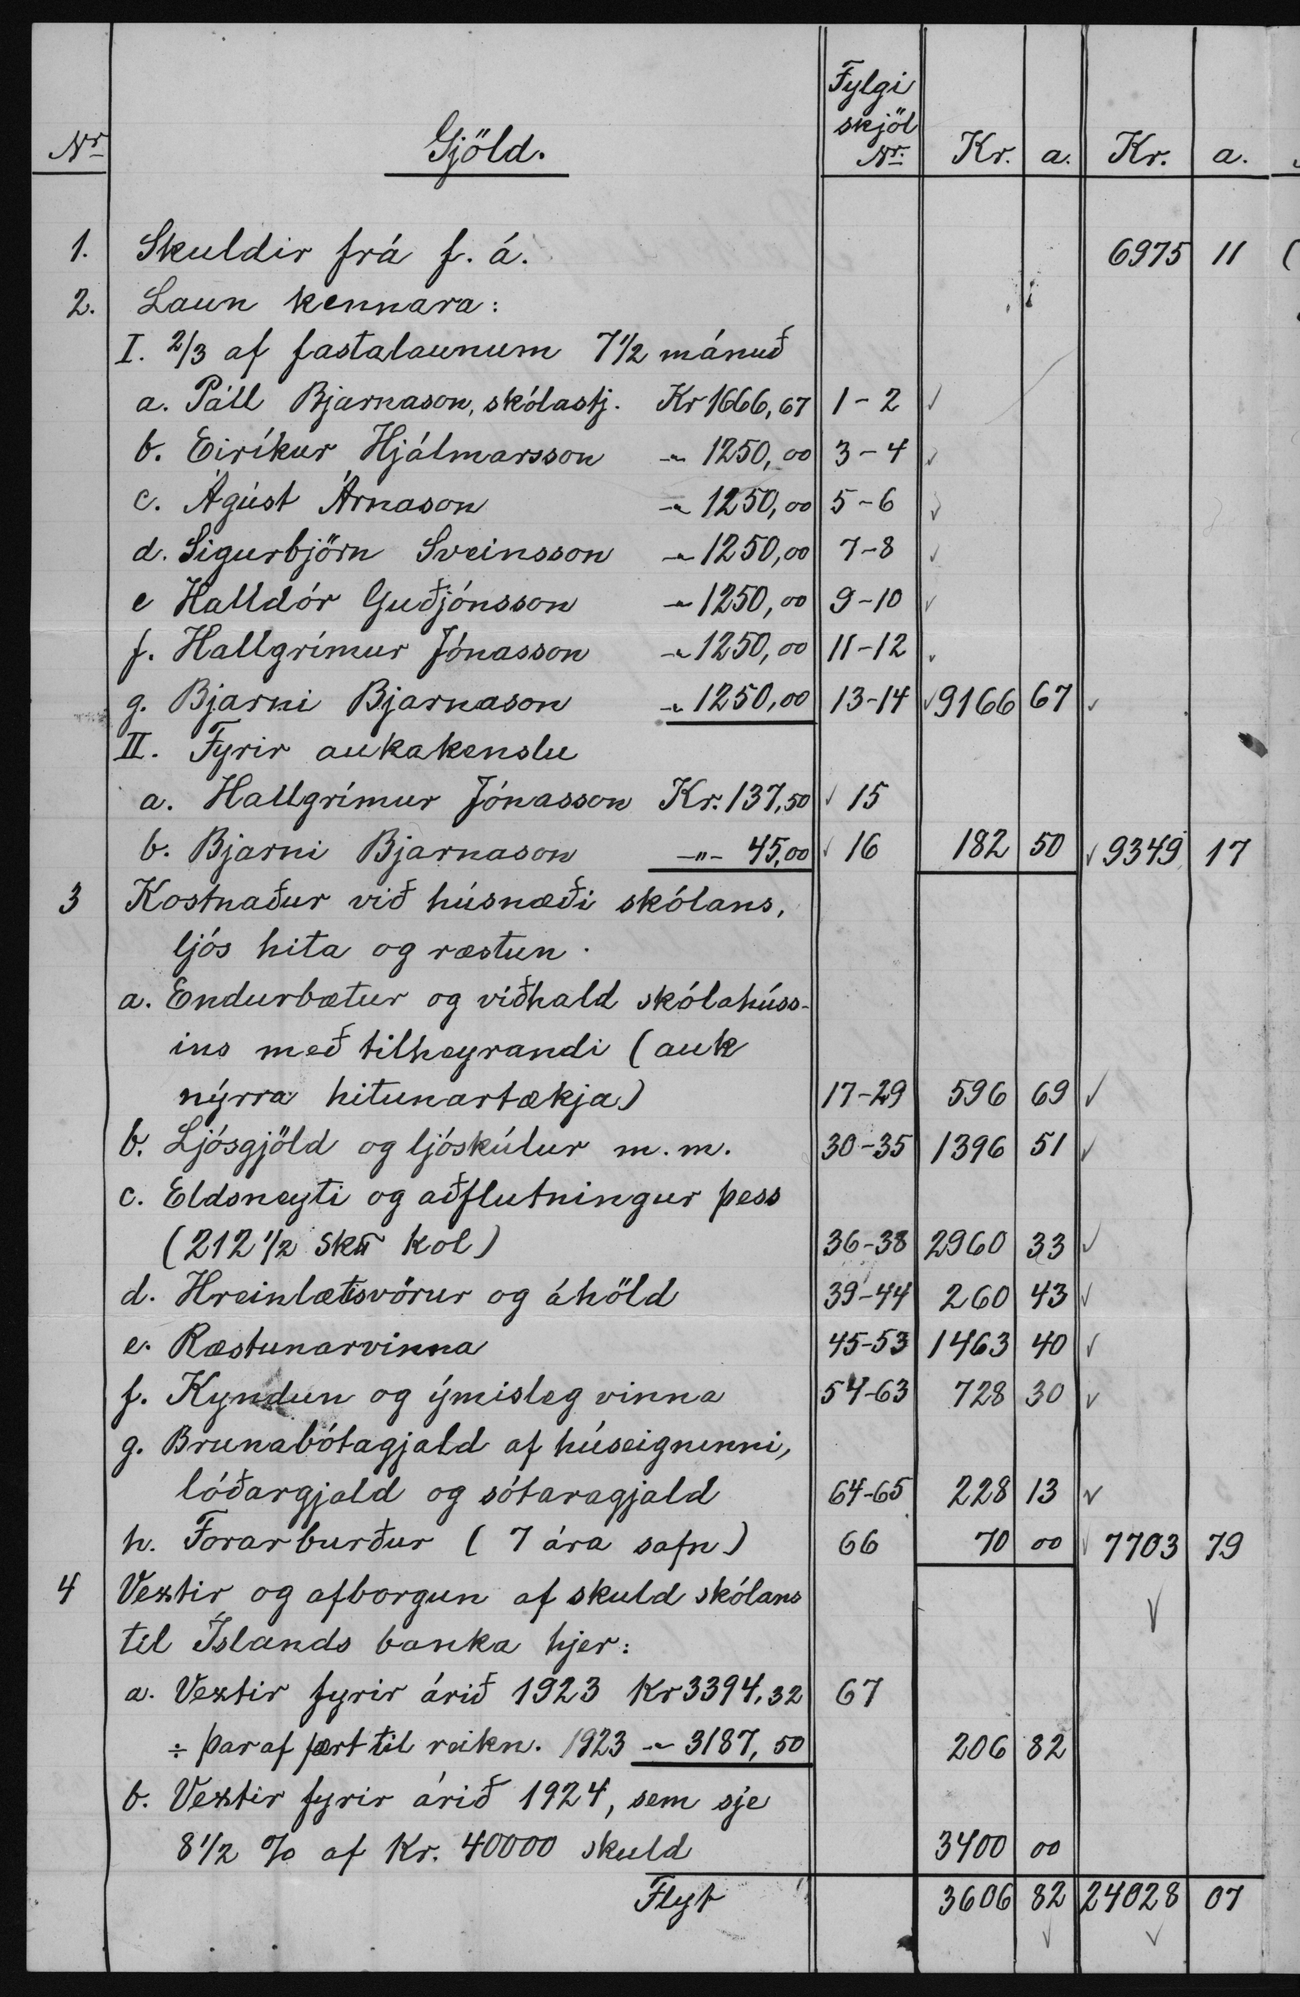 Nr. Gjöld. Fylgi skjöl Nr. Kr. a. Kr. a.
1. Skuldir frá f. á. 6975 11
2. Laun kennara:
I. 2/3 af fastalaunum 7 1/2 mánuð
a. Páll Bjarnason, skólastj. Kr 1666,67 1-2
b. Eiríkur Hjálmarsson -"- 1250,00 3-4
c. Ágúst Árnason -"- 1250,00 5-6
d. Sigurbjörn Sveinsson -"- 1250,00 7-8
e Halldór Guðjónsson -"- 1250,00 9-10
f. Hallgrímur Jónasson -"- 1250,00 11-12
g. Bjarni Bjarnason -"- 1250,00 13-14 9166 67
II. Fyrir aukakenslu
a. Hallgrímur Jónasson Kr. 137,50 15
b. Bjarni Bjarnason -"- 45,00 16 182 50 9349 17
3 Kostnaður við húsnæði skólans,
ljós hita og ræstun.
a. Endurbætur og viðhald skólahúss-
ins með tilheyrandi (auk
nýrra hitunartækja) 17-29 596 69
b. Ljósgjöld og ljóskúlur m.m. 30-35 1396 51
c. Eldsneyti og aðflutningur þess
(212 1/2 skp kol) 36-38 2960 33
d. Hreinlætisvörur og áhöld 39-44 260 43
e. Ræstunarvinna 45-53 1463 40
f. Kyndun og ýmisleg vinna 54-63 728 30
g. Brunabótagjald af húseigninni,
lóðargjald og sótaragjald 64-65 228 13
h. Forarburður (7 ára safn) 66 70 00 7703 79
4 Vextir og afborgun af skuld skólans
til Íslands banka hjer:
a. Vextir fyrir árið 1923 Kr 3394,32 67
÷ þar af fært til reikn. 1923 -"- 3187,50 206 82
b. Vextir fyrir árið 1924, sem sje
8 1/2 % af Kr. 40000 skuld 3400 00
Flyt 3606 82 24028 07